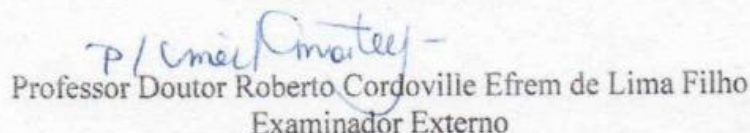 P/
Professor Doutor Roberto Cordoville Efrem de Lima Filho
Examinador Externo